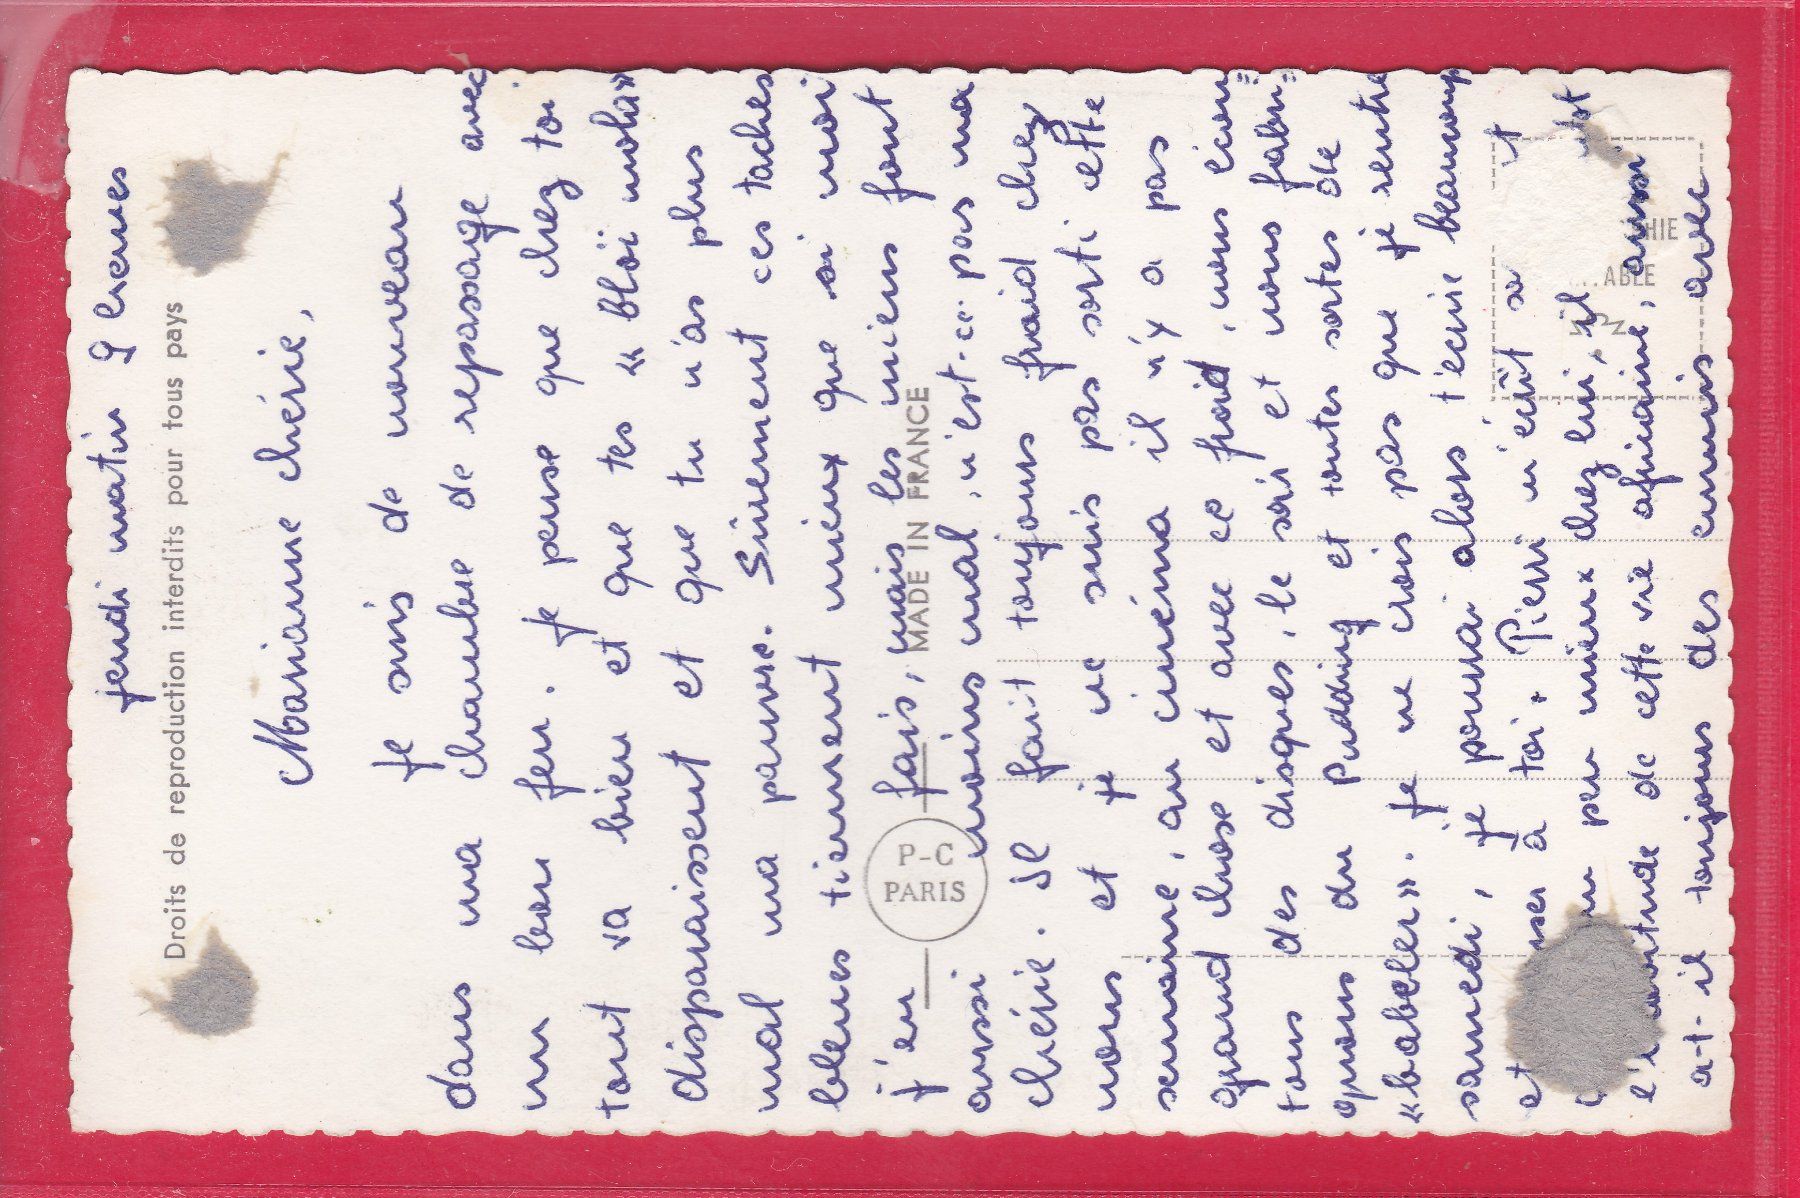 jeudi matin 9 heures
Droits de reproduction interdits pour tous pays
Marianne chérie,
Je suis de nouveau
dans ma chambre de repassage avec
un bon feu. Je pense que chez toi
tout va bien et que tes « bloï moha»
disparaissent et que tu n'as plus
mal ma pauvre. Sûrement ces taches
bleues tiennent mieux que si moi
j'en fais, mais les miens font
aussi moins mal, n'est-ce pas ma
chérie. Il fait toujours froid chez
nous et je ne suis pas sorti cette
semaine, au cinéma il n'y a pas
grand chose et avec ce froid, nous écou=
tons des disques, le soir et nous fabri=
quons du Pudding et toutes sortes de
«babeler». Je ne crois pas que je rentre
samedi, je pourrai alors t'écrire beaucoup
et à toi. Pierre m'écrit
un peu mieux chez lui, il
de cette vie africaine, aussi
a-t-il toujours des ennuis avec
MADE IN FRANCE
P-C
PARIS